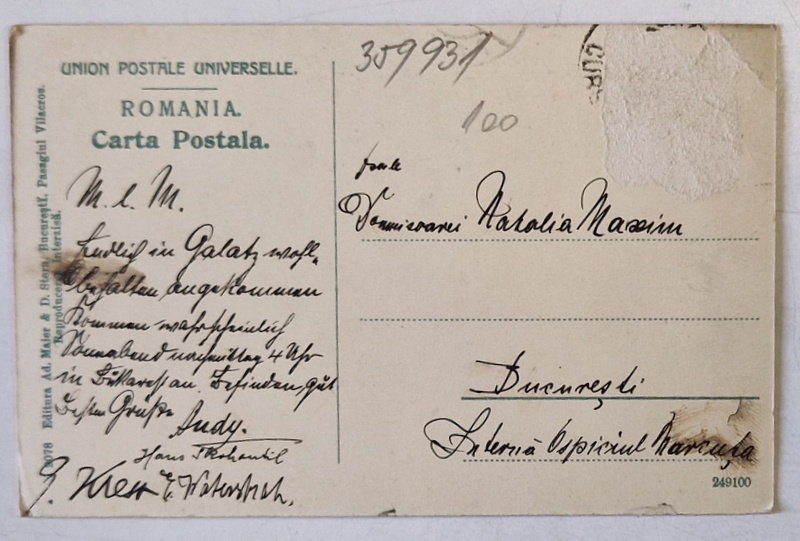 UNION POSTALE UNIVERSELLE.
ROMANIA.
Carta Postala.
Editura Ad. Maier & D. Stern, Bucureştĭ, Pasagiul Vilacros.
Reproducerea interzisă.
M. l. M.
Endlich in Galatz wohl-
behalten angekommen
Kommen wahrscheinlich
Sonnabend nachmittag 4 Uhr
in Bukarest an. Befinden gut
Beste Grüße
Andy.
Hans
359931
100
CUR
Domnisoarei Natalia Maxim
Bucureşti
Internă Ospiciul Marcuţa
249100